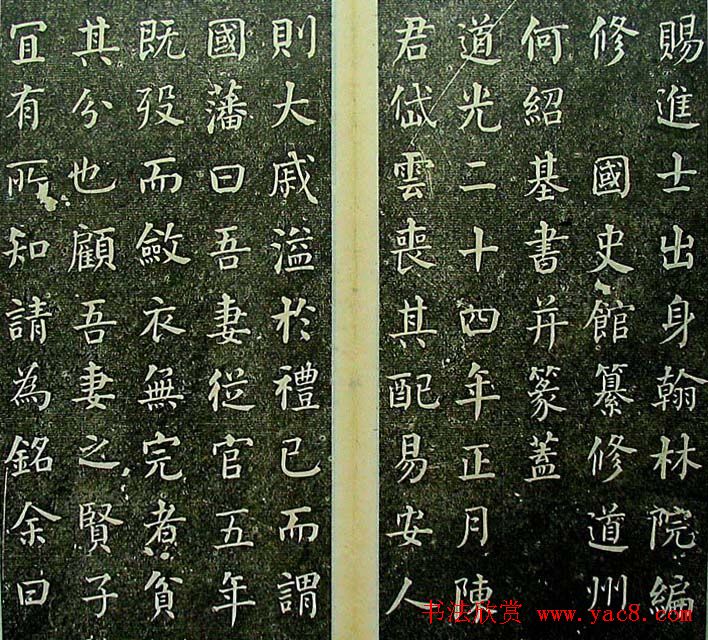 賜進士出身翰林院編
修　國史館纂修道州
何紹基書并篆蓋
道光二十四年正月陳
君岱雲喪其配易安人
則大戚溢於禮已而謂
國藩曰吾妻從官五年
既歿而斂衣無完者貧
其分也顧吾妻之賢子
宜有所知請為銘余曰
书法欣赏 www.yac8.com